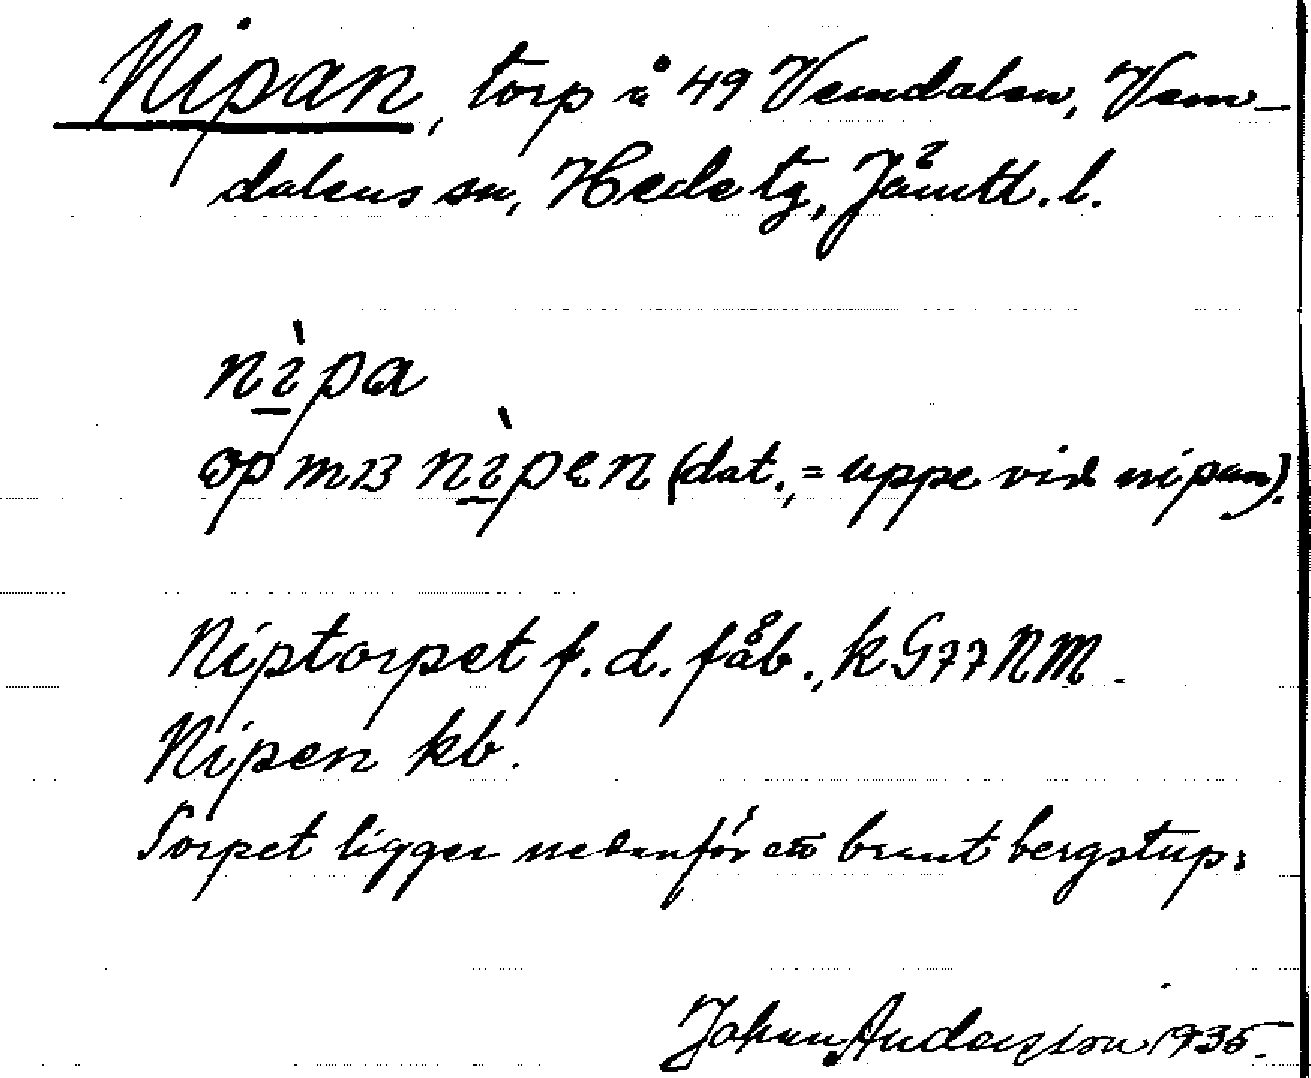 Nipan, torp å 49 Vemdalen, Vem-
dalens sn, Hede tg, Jämtl. l.
nìpa
op mɞ nìpen (dat., = uppe vid nipan).
Niptorpet f. d. fäb., k G77NM.
Nipen kb.
Torpet ligger nedanför ett brant bergstup.
Johan Andersson 1935.